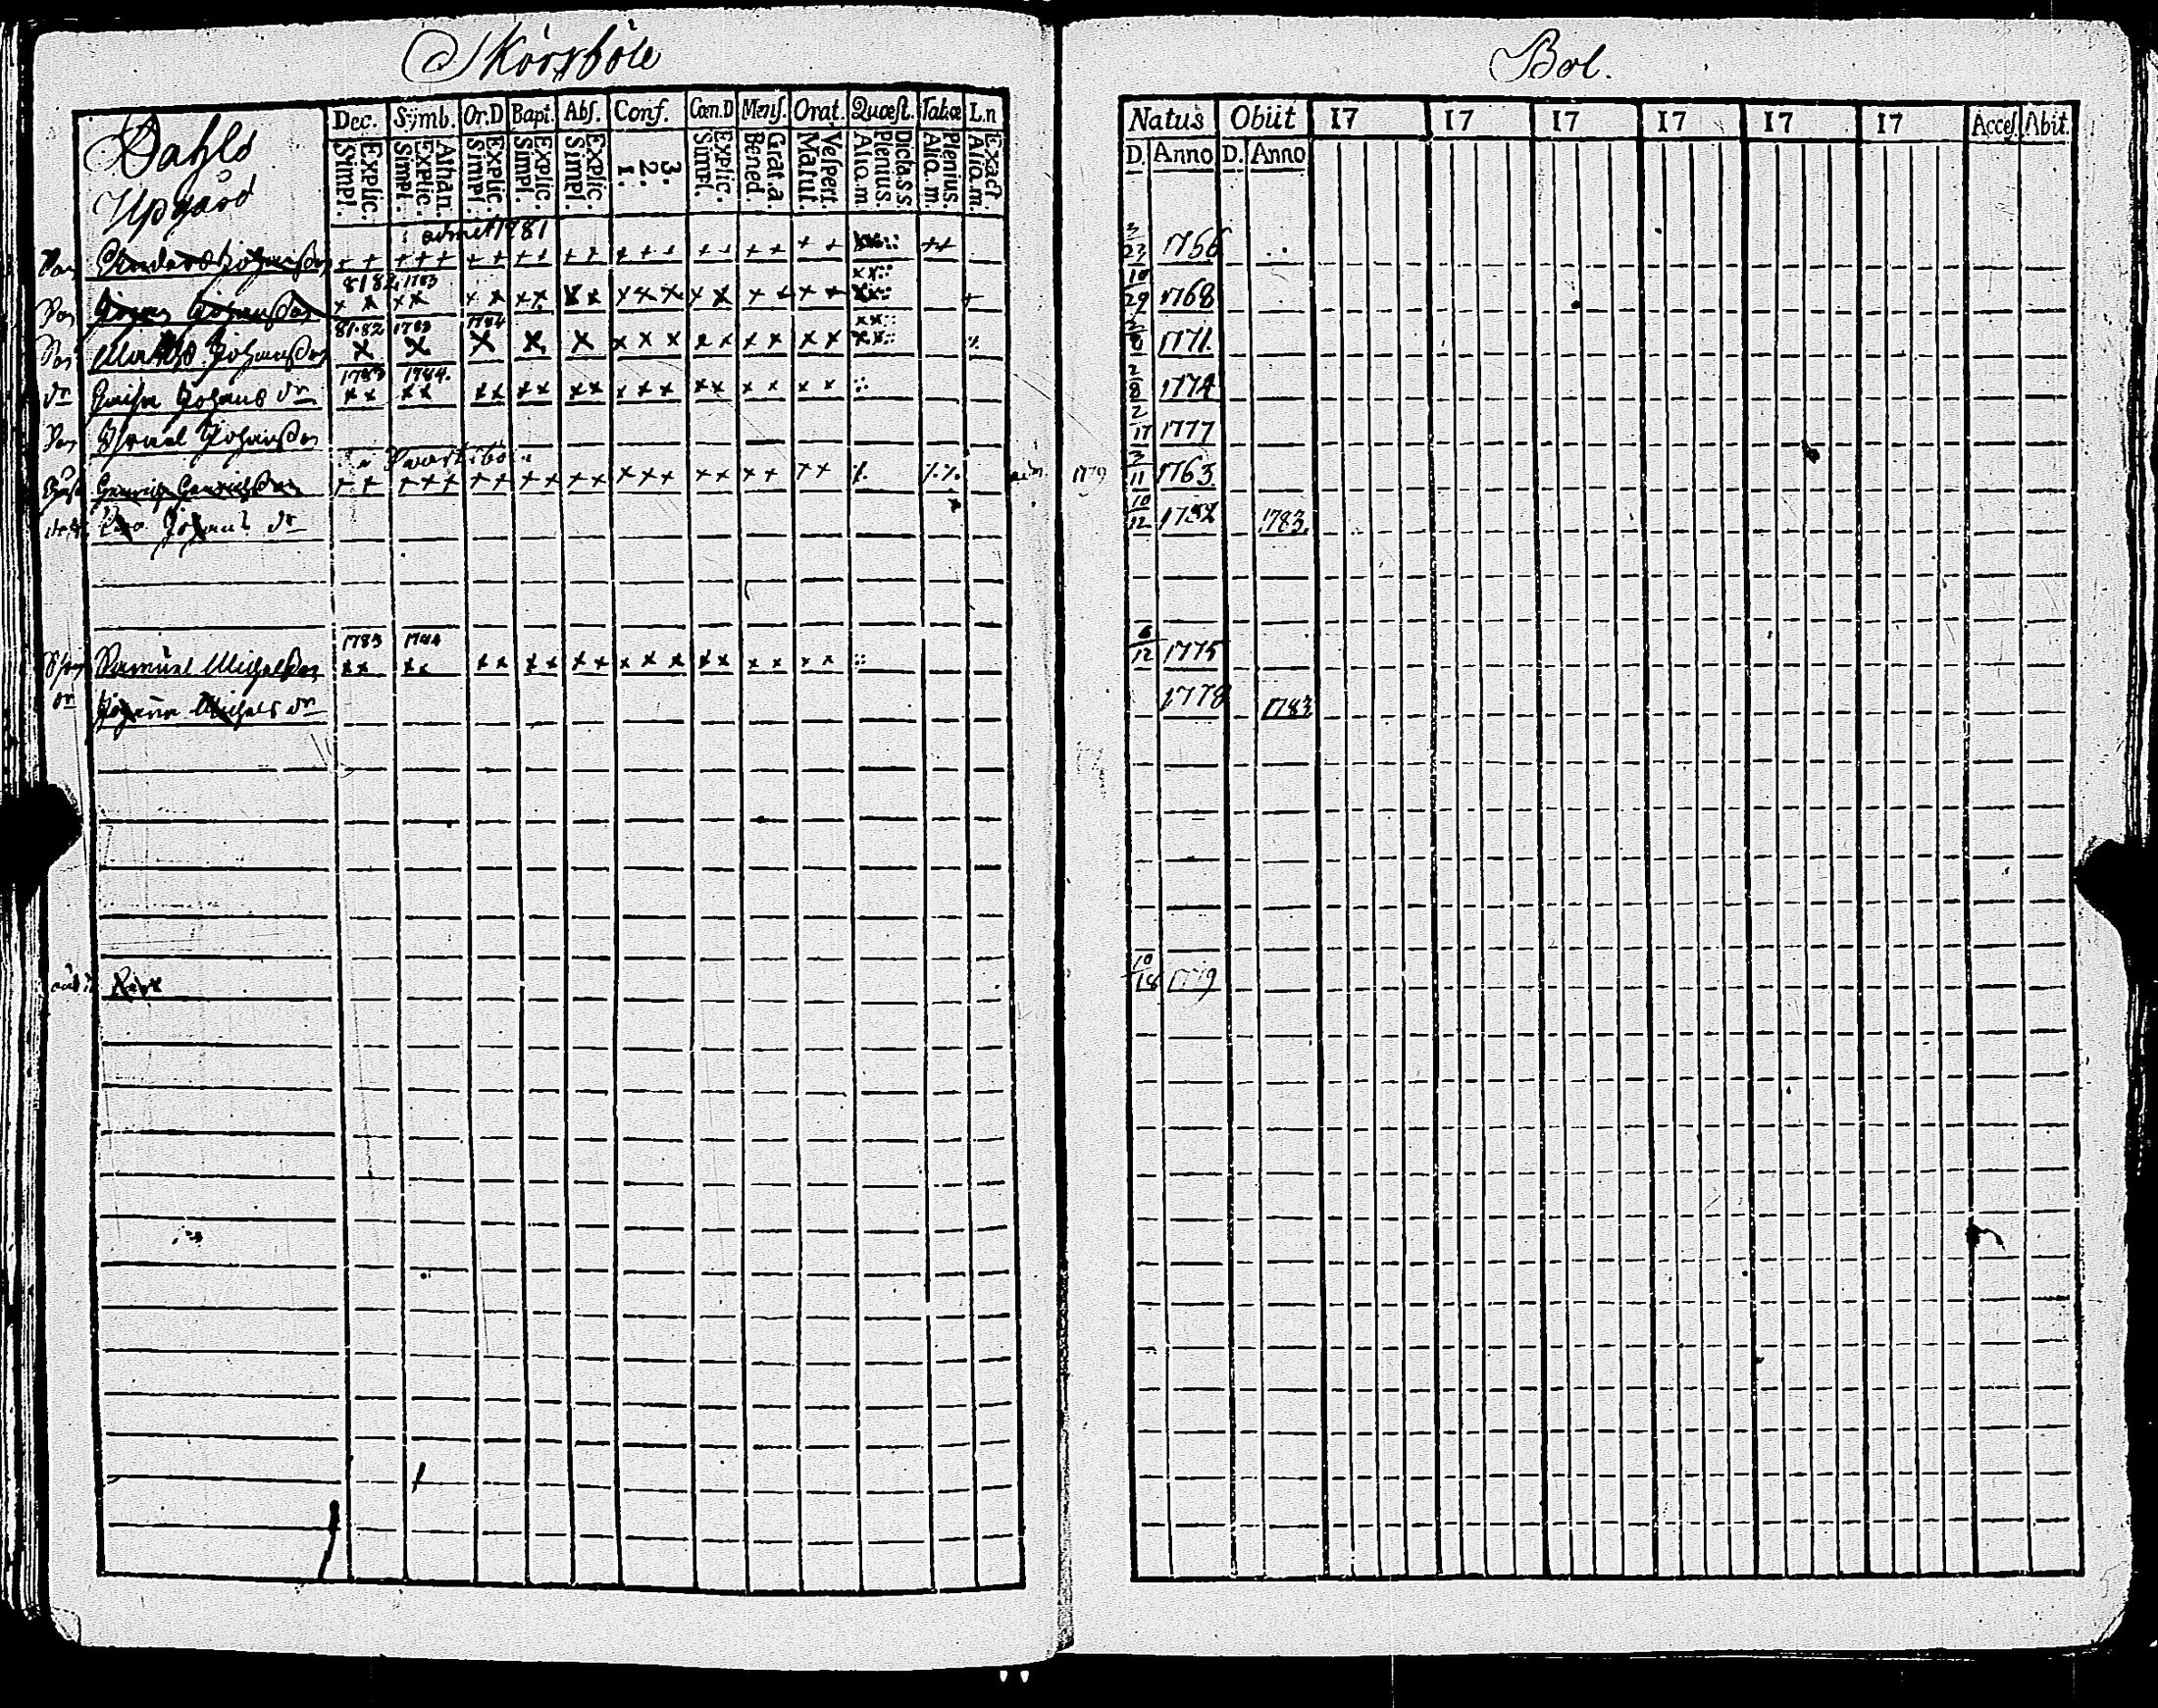 Skörsböle
Bol.
Dahls
Upgård
Dec. Symb. Or.D Bapt. Abs. Conf. Cœn.D Mens. Orat. Quœst. Tabœ L.n
Explic. Simpl. Athan. Explic. Simpl. Explic. Simpl. Explic. Simpl. Explic. Simpl. 3. 2. 1. Explic. Simpl. Grat. a Bened. Vespert. Matut. Dicta.s.s Plenius. Alio.m Plenius. Alio.m. Exact. Alio.m.
Natus Obiit 17 17 17 17 17 17 Acces. Abit.
D. Anno D. Anno
admit 1781
Son Anders Johansson 3/23 1766
81 82 1783
Son Johan Johansson 10/29 1768
81.82 1783 1784
Son Matths Johansson 1771.
1783 1784.
dr Caisa Johans dr 2/8 1774
Son Israel Johansson 2/17 1777
Henrich Henrichsson 1779 3/11 1763
Johans dr 10/12 1783.
1783 1784
Samuel Michelsson 6/12 1775
dr Johanna Michels dr 1778 1783
10/18 1779